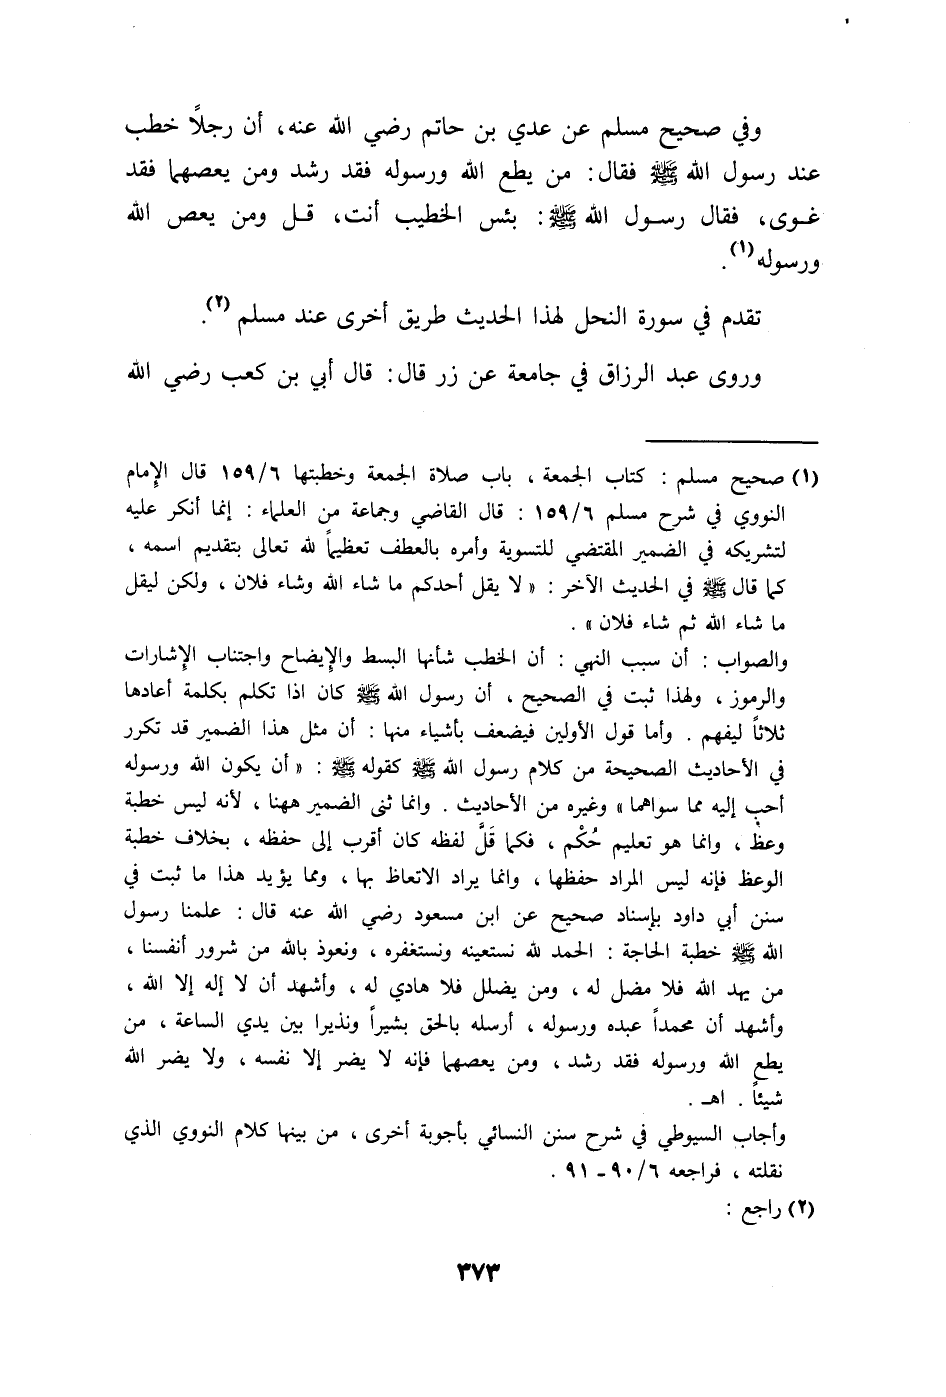 وفي صحيح مسلم عن عدي بن حاتم رضي الله عنه، أن رجلاً خطب
عند رسول الله ﷺ فقال: من يطع الله ورسوله فقد رشد ومن يعصهما فقد
غـوى، فقال رسـول الله ﷺ: بئس الخطيب أنت، قـل ومن يعص الله
ورسوله(١).
تقدم في سورة النحل لهذا الحديث طريق أخرى عند مسلم (٢).
وروى عبد الرزاق في جامعة عن زر قال: قال أبي بن كعب رضي الله
(١) صحيح مسلم : كتاب الجمعة ، باب صلاة الجمعة وخطبتها ١٥٩/٦ قال الإمام
النووي في شرح مسلم ١٥٩/٦ : قال القاضي وجماعة من العلماء : إنما أنكر عليه
لتشريكه في الضمير المقتضي للتسوية وأمره بالعطف تعظيماً لله تعالى بتقديم اسمه ،
كما قال ﷺ في الحديث الآخر : « لا يقل أحدكم ما شاء الله وشاء فلان ، ولكن ليقل
ما شاء الله ثم شاء فلان » .
والصواب : أن سبب النهي : أن الخطب شأنها البسط والإيضاح واجتناب الإشارات
والرموز ، ولهذا ثبت في الصحيح ، أن رسول الله ﷺ كان اذا تكلم بكلمة أعادها
ثلاثاً ليفهم . وأما قول الأولين فيضعف بأشياء منها : أن مثل هذا الضمير قد تكرر
في الأحاديث الصحيحة من كلام رسول الله ﷺ كقوله ﷺ : « أن يكون الله ورسوله
أحب إليه مما سواهما » وغيره من الأحاديث . وانما ثنى الضمير ههنا ، لأنه ليس خطبة
وعظ ، وانما هو تعليم حُكْم ، فكما قَلَّ لفظه كان أقرب إلى حفظه ، بخلاف خطبة
الوعظ فإنه ليس المراد حفظها ، وانما يراد الاتعاظ بها ، ومما يؤيد هذا ما ثبت في
سنن أبي داود بإسناد صحيح عن ابن مسعود رضي الله عنه قال : علمنا رسول
الله ﷺ خطبة الحاجة : الحمد لله نستعينه ونستغفره ، ونعوذ بالله من شرور أنفسنا ،
من يهد الله فلا مضل له ، ومن يضلل فلا هادي له ، وأشهد أن لا إله إلا الله ،
وأشهد أن محمداً عبده ورسوله ، أرسله بالحق بشيراً ونذيرا بين يدي الساعة ، من
يطع الله ورسوله فقد رشد ، ومن يعصهما فإنه لا يضر إلا نفسه ، ولا يضر الله
شيئاً . اهـ .
وأجاب السيوطي في شرح سنن النسائي بأجوبة أخرى ، من بينها كلام النووي الذي
نقلته ، فراجعه ٩٠/٦ ـ ٩١ .
(٢) راجع :
٣٧٣